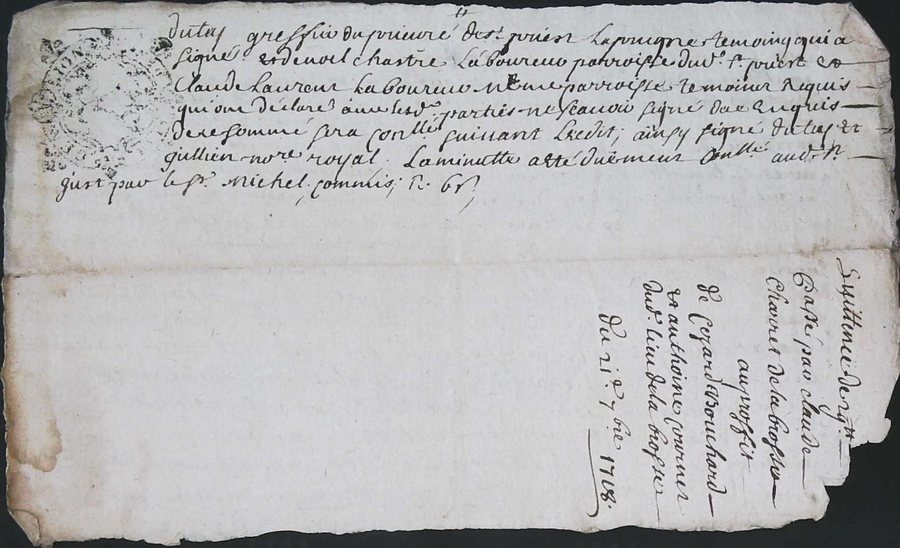 dutey greffier du prieuré de st. priest Laprugne temoing qui a
signé et denoil chastre Laboureur parroisse dud. St. priest et
Claude Laurent Laboureur mesme parroisse temoins requis
qui ont déclaré avec lesd. parties ne scavoir signé de ce enquis
de ce sommé sera conllé suivant L'edit; ainsy signé dutey et
gullien nore royal. La minutte a été duëment conllé aud. St.
just par le Sr. Michel, commis; R. 6s.
Quittence de
Passé par claude
Charret de la brosse
au proffit
de Cezard Bouchard
et anthoine Cornet
dud. lieu de la brosse
du 21e. 7bre 1708.